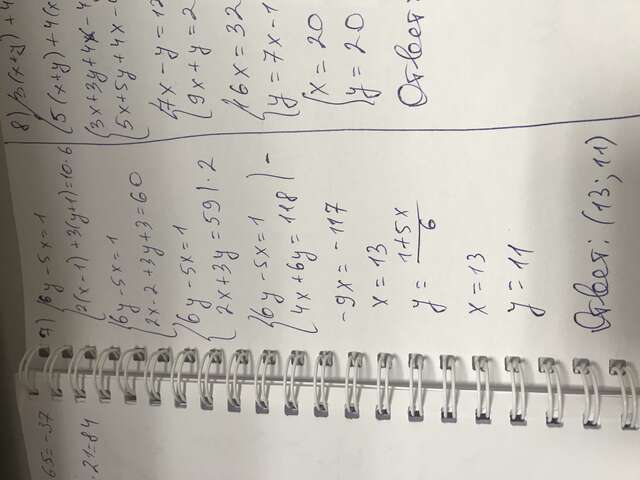 65=-37
·21=84
7) {6y-5x=1
{2(x-1)+3(y+1)=10·6
{6y-5x=1
{2x-2+3y+3=60
{6y-5x=1
{2x+3y=59|·2
{6y-5x=1
{4x+6y=118 | -
-9x=-117
x=13
y=1+5x/6
x=13
y=11
Ответ: (13;11)
8) {3(x+y)+4
{5(x+y)+4(x
{3x+3y+4x-4
{5x+5y+4x-
{7x-y=12
{9x+y=2
{16x=32
{y=7x-1
{x=20
{y=20
Ответ: